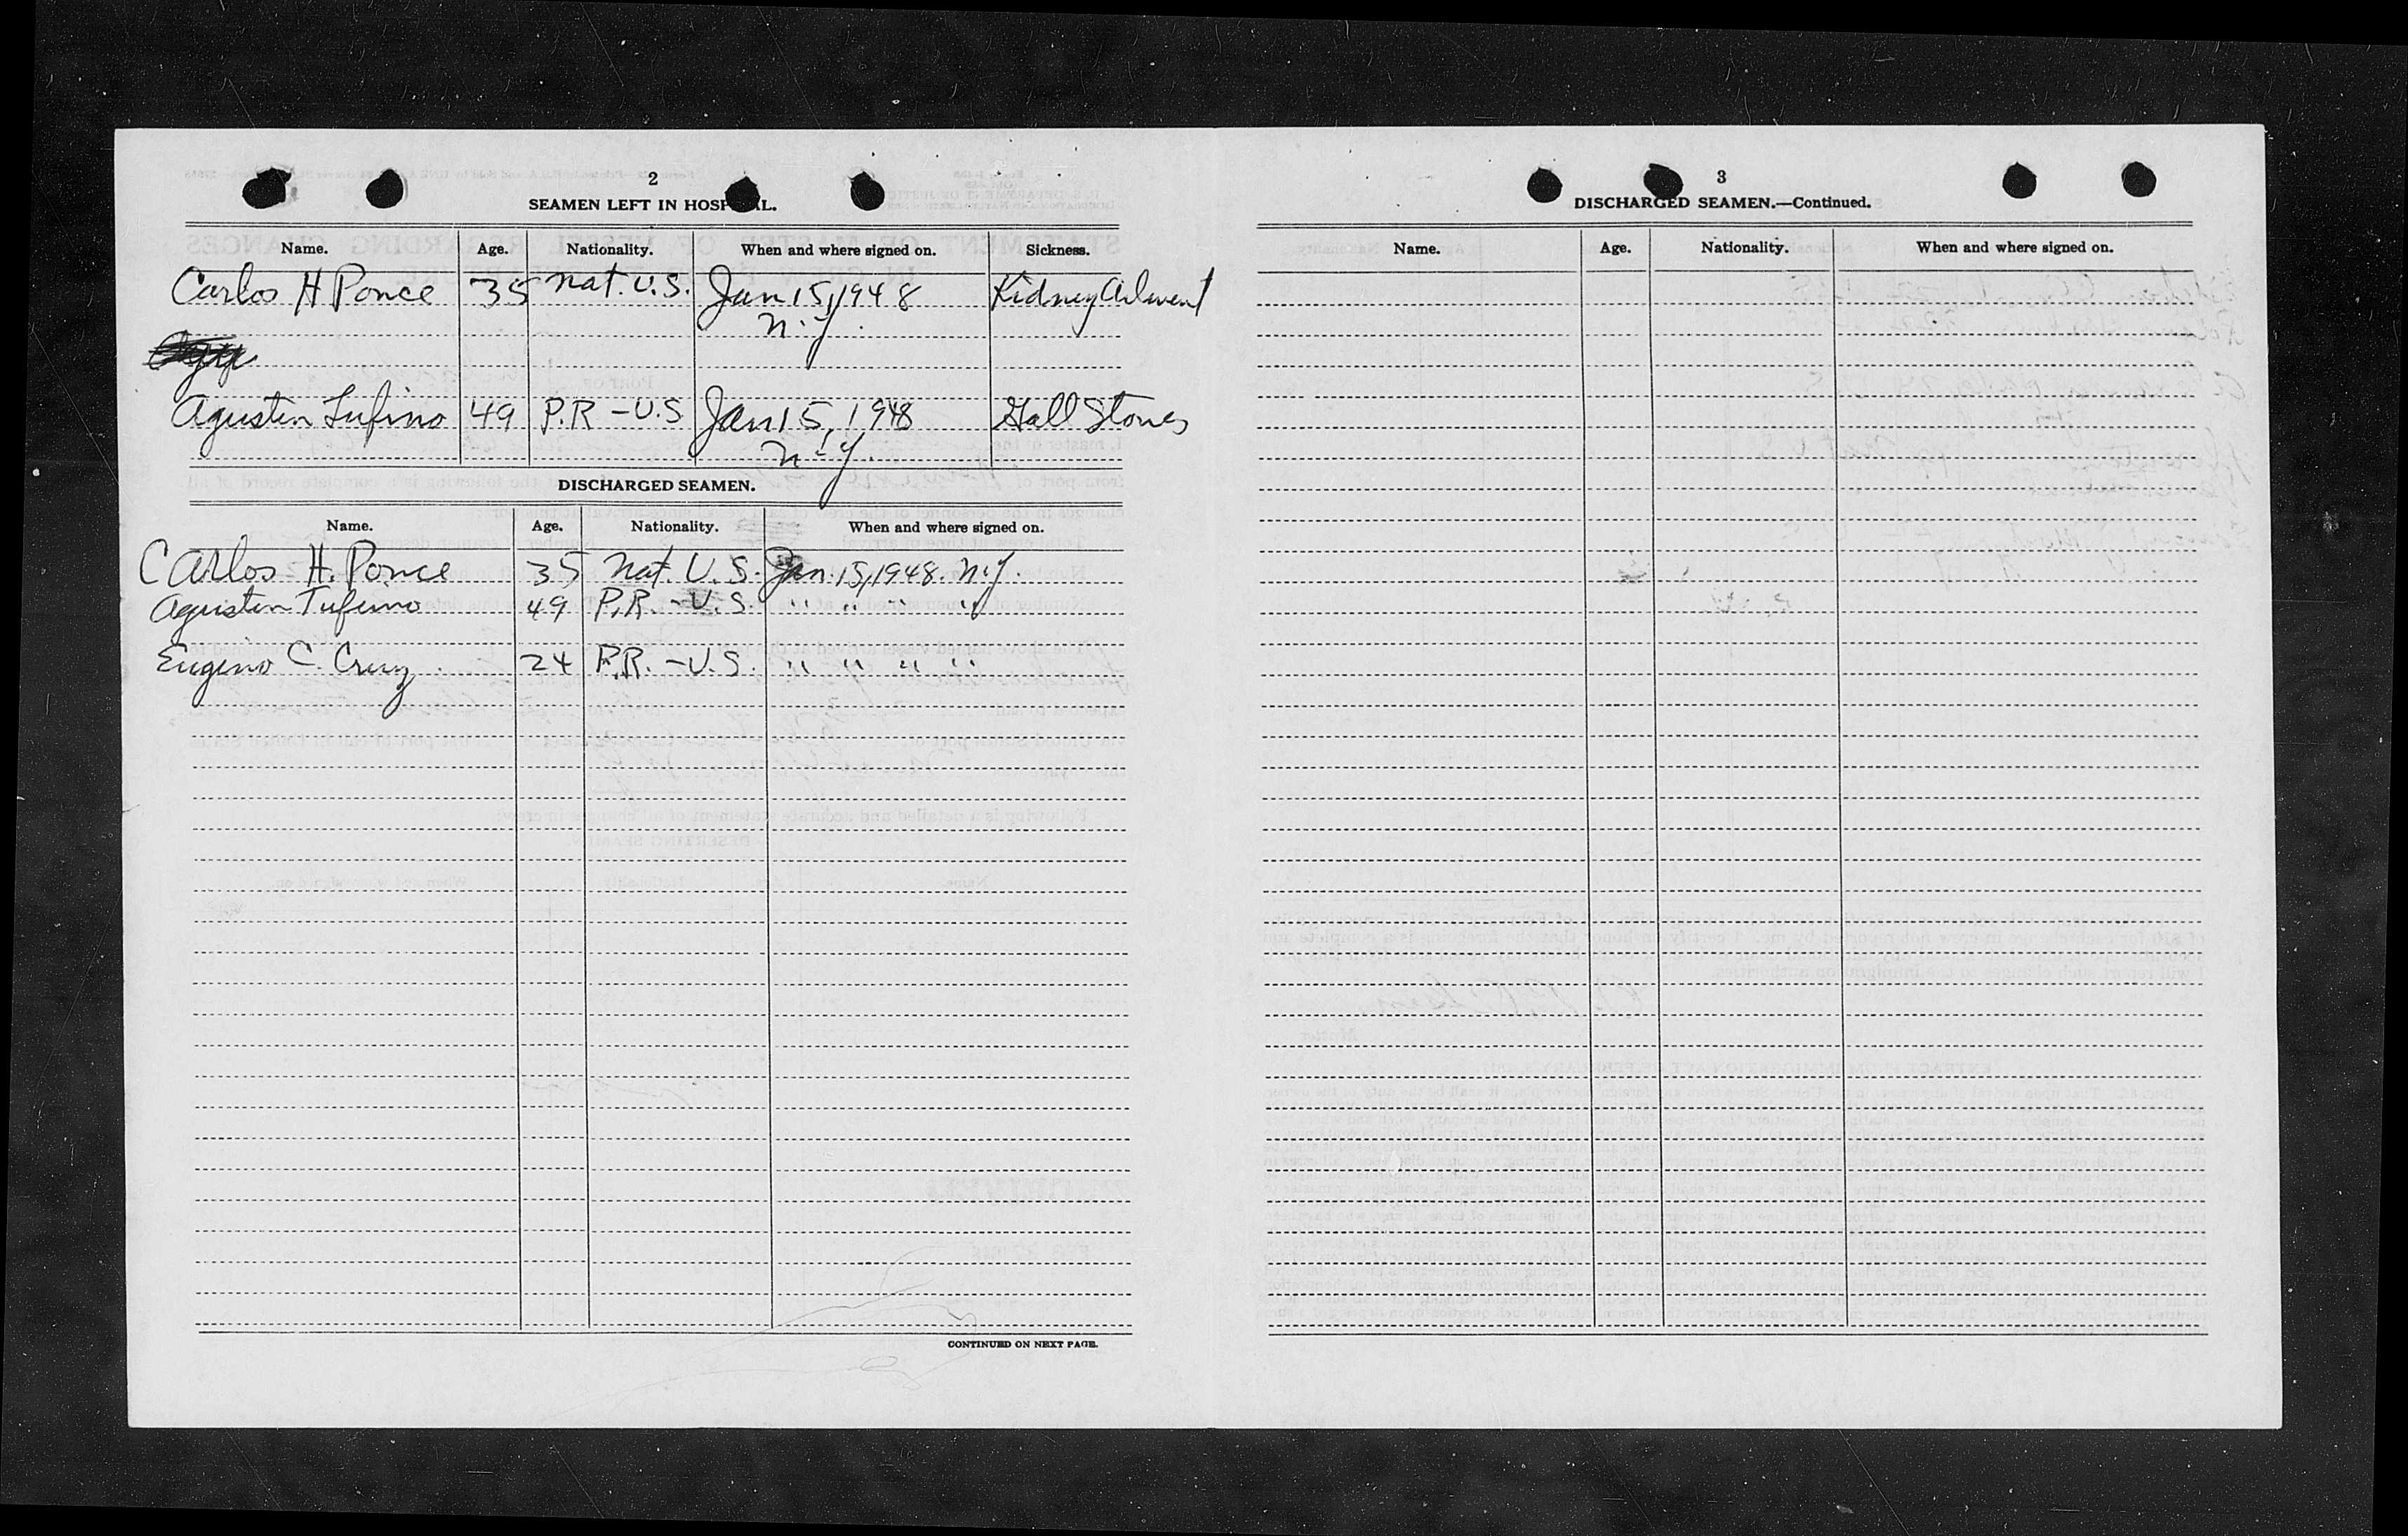 2
SEAMEN LEFT IN HOSP L.
Name. Age. Nationality. When and where signed on. Sickness.
Carlos H Ponce 35 Nat. U.S. Jan 15, 1948 Kidney Ailment
N.Y.
Agustin Tufino 49 P.R - U.S Jan 15, 1948 Gall Stones
N.Y.
DISCHARGED SEAMEN.
Name. Age. Nationality. When and where signed on.
Carlos H. Ponce 35 Nat. U. S. Jan. 15, 1948. N.Y.
Agustin Tufino 49 P.R. - U. S " " " "
Eugenio C. Cruz. 24 P.R. - U. S. " " " "
CONTINUED ON NEXT PAGE.
3
DISCHARGED SEAMEN.—Continued.
Name. Age. Nationality. When and where signed on.